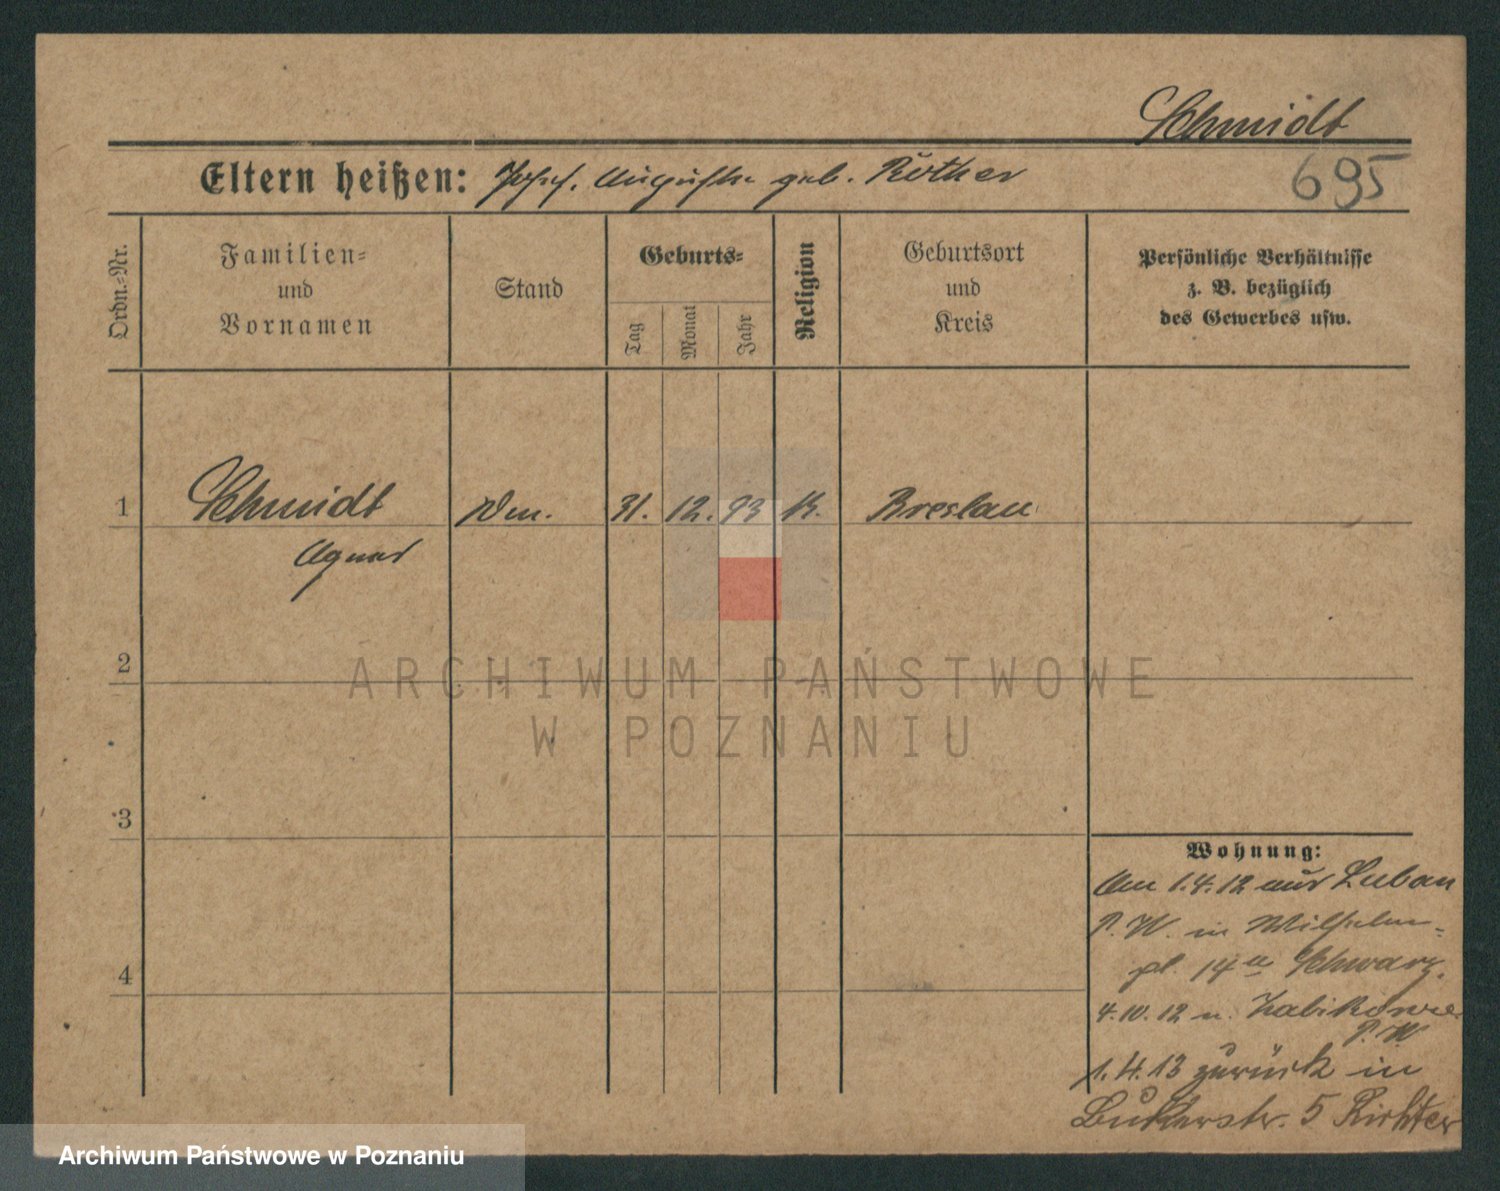 Schmidt
Eltern heißen: Josef. Auguste geb. Rother
695
Ordn.=Nr.
Familien=
und
Vornamen
Stand
Geburts=
Tag
Monat
Jahr
Religion
Geburtsort
und
Kreis
Persönliche Verhältnisse
z. B. bezüglich
des Gewerbes usw.
1 Schmidt 31. 12. 93 K. Breslau
Agnes
2
ARCHIWUM PAŃSTWOWE
W POZNANIU
3
4
Wohnung:
Am 1.4.12 aus Luban
P. W. in Wilhelm=
pl. 14 Schwarz.
4.10.12 n. Zabikowo
P. W
1.4.13 zurück in
Bukerstr. 5 Richter
Archiwum Państwowe w Poznaniu